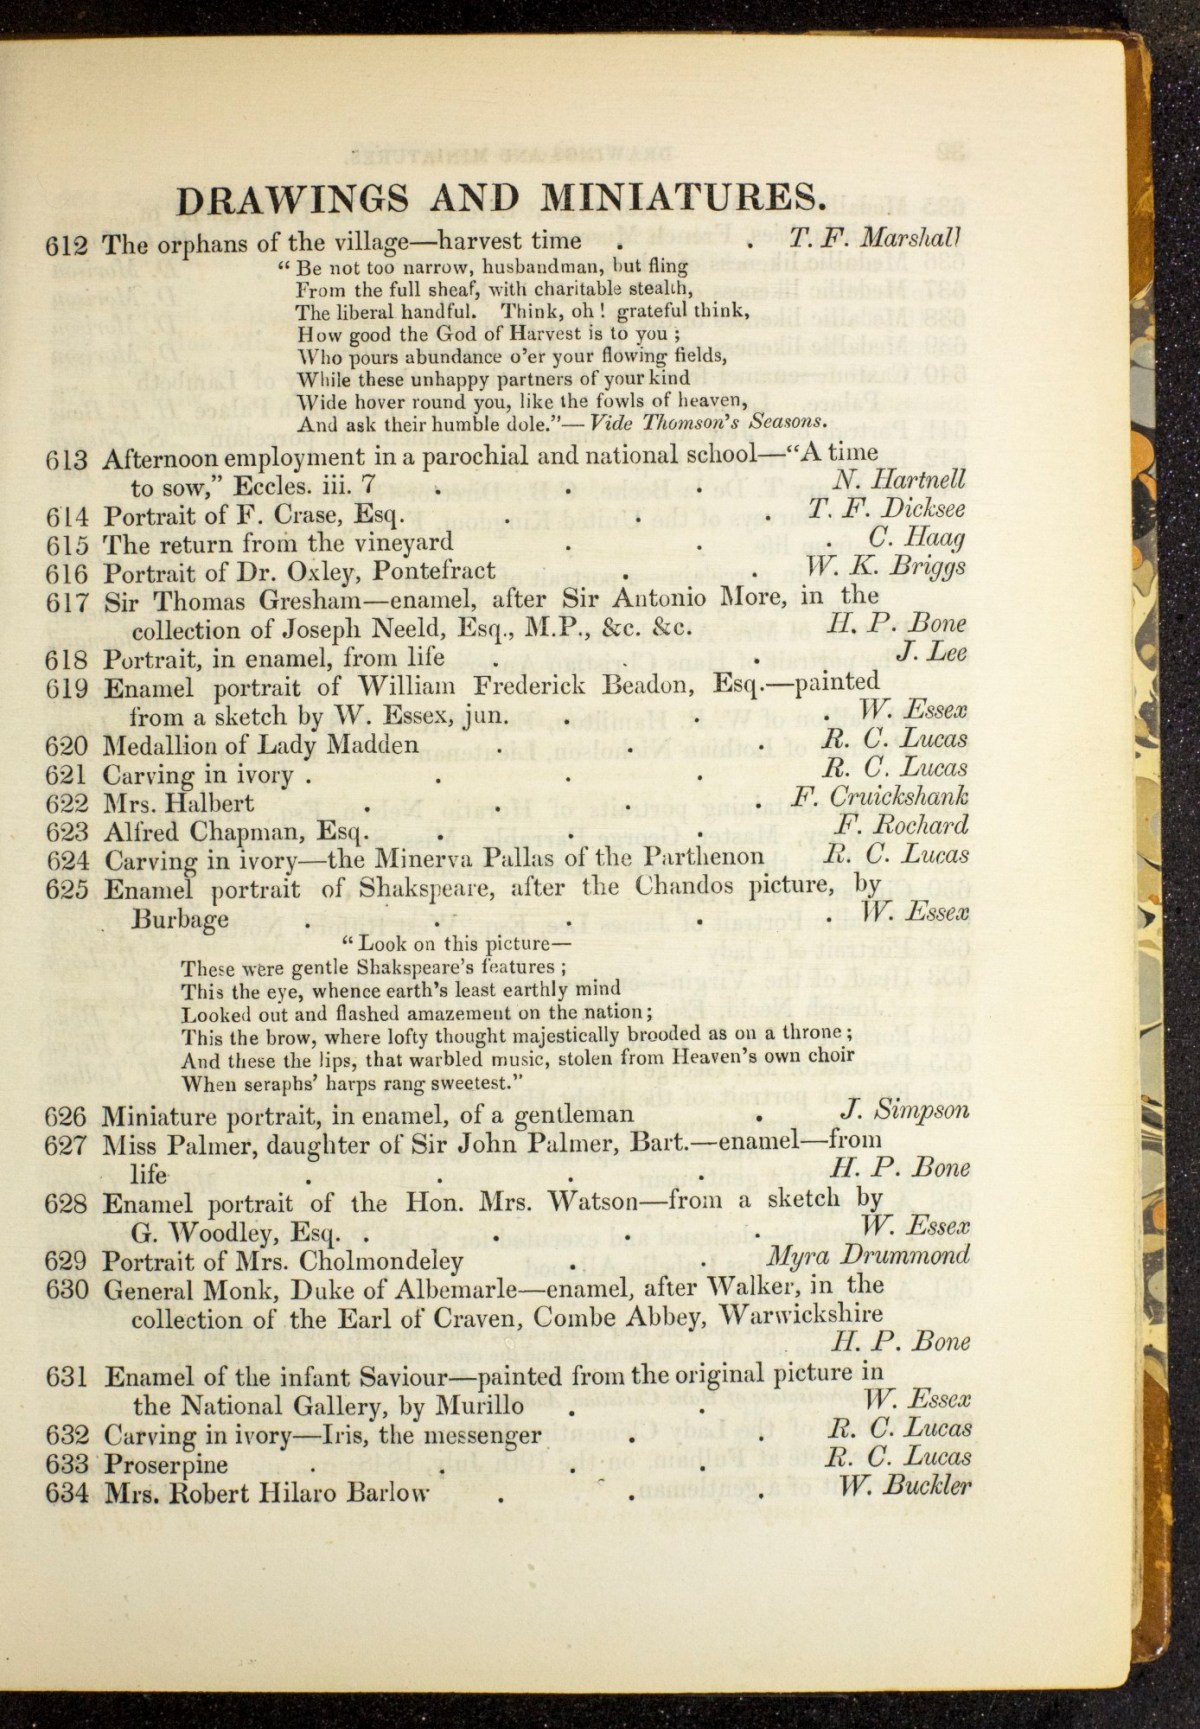 DRAWINGS AND MINIATURES.
612 The orphans of the village—harvest time . . T. F. Marshall
“ Be not too narrow, husbandman, but fling
From the full sheaf, with charitable stealth,
The liberal handful. Think, oh ! grateful think,
How good the God of Harvest is to you ;
Who pours abundance o’er your flowing fields,
While these unhappy partners of your kind
Wide hover round you, like the fowls of heaven,
And ask their humble dole.”—Vide Thomson’s Seasons.
613 Afternoon employment in a parochial and national school—“A time
to sow,” Eccles. iii. 7 . . . N. Hartnell
614 Portrait of F. Crase, Esq. . . . T. F. Dicksee
615 The return from the vineyard . . . C. Haag
616 Portrait of Dr. Oxley, Pontefract . . W. K. Briggs
617 Sir Thomas Gresham—enamel, after Sir Antonio More, in the
collection of Joseph Neeld, Esq., M.P., &c. &c. H. P. Bone
618 Portrait, in enamel, from life . . . J. Lee
619 Enamel portrait of William Frederick Beadon, Esq.—painted
from a sketch by W. Essex, jun. . . . W. Essex
620 Medallion of Lady Madden . . . R. C. Lucas
621 Carving in ivory . . . . R. C. Lucas
622 Mrs. Halbert . . . . F. Cruickshank
623 Alfred Chapman, Esq. . . . F. Rochard
624 Carving in ivory—the Minerva Pallas of the Parthenon R. C. Lucas
625 Enamel portrait of Shakspeare, after the Chandos picture, by
Burbage . . . . . W. Essex
“ Look on this picture—
These were gentle Shakspeare’s features ;
This the eye, whence earth’s least earthly mind
Looked out and flashed amazement on the nation ;
This the brow, where lofty thought majestically brooded as on a throne ;
And these the lips, that warbled music, stolen from Heaven’s own choir
When seraphs’ harps rang sweetest.”
626 Miniature portrait, in enamel, of a gentleman . J. Simpson
627 Miss Palmer, daughter of Sir John Palmer, Bart.—enamel—from
life . . . . H. P. Bone
628 Enamel portrait of the Hon. Mrs. Watson—from a sketch by
G. Woodley, Esq. . . . . W. Essex
629 Portrait of Mrs. Cholmondeley . . Myra Drummond
630 General Monk, Duke of Albemarle—enamel, after Walker, in the
collection of the Earl of Craven, Combe Abbey, Warwickshire
H. P. Bone
631 Enamel of the infant Saviour—painted from the original picture in
the National Gallery, by Murillo . . W. Essex
632 Carving in ivory—Iris, the messenger . . R. C. Lucas
633 Proserpine . . . . R. C. Lucas
634 Mrs. Robert Hilaro Barlow . . . W. Buckler